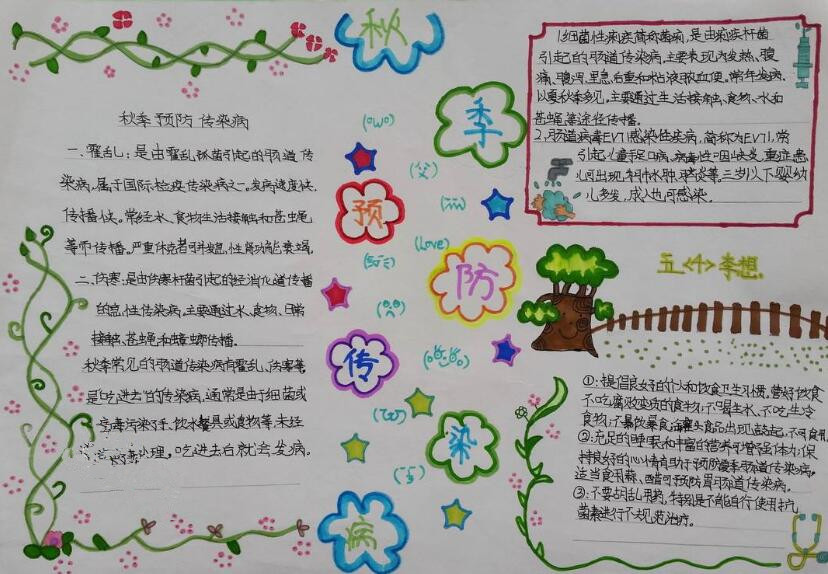 秋季预防传染病
秋季预防传染病
一、霍乱:是由霍乱弧菌引起的肠道传
染病,属于国际检疫传染病之一。发病速度快.
传播快。常经水、食物生活接触和苍蝇
等而传播。严重休克者可并发急性肾功能衰竭.
二、伤寒:是由伤寒杆菌引起的经消化道传播
的急性传染病,主要通过水、食物、日常
接触、苍蝇和蟑螂传播.
秋季常见的肠道传染病有霍乱、伤寒等
是吃进去"的传染病,通常是由于细菌或
病毒污染了手、饮水餐具或食物等,未经
处理。吃进去后就会发病。
(Love)
1细菌性痢疾简称菌痢,是由痢疾杆菌
引起的肠道传染病,主要表现为发热、腹
痛、腹泻、里急后重和粘液脓血便,常年发病.
以夏秋季多见,主要通过生活接触、食物、水和
苍蝇等途径传播.
2、肠道病毒EV71感染性疾病,简称为EV71,常
引起儿童手足口病、病毒性咽峡炎,重症患
儿可出现肺水肿、脑炎等,三岁以下婴幼
儿多发,成人也可感染.
五<4>李想.
①:提倡良好的个人和饮食卫生习惯。营好饮食
不吃腐败变质的食物,不喝生水、不吃生冷
食物,不暴饮暴食,罐头食品出现,不可食用
②:充足的睡眠和丰富的营养可增强体力,保
持良好的心情有助于预防夏季肠道传染病。
适当食用蒜、醋可预防胃肠道传染病。
③:不要胡乱用药,特别是不能自行使用抗
菌素进行不规范治疗。